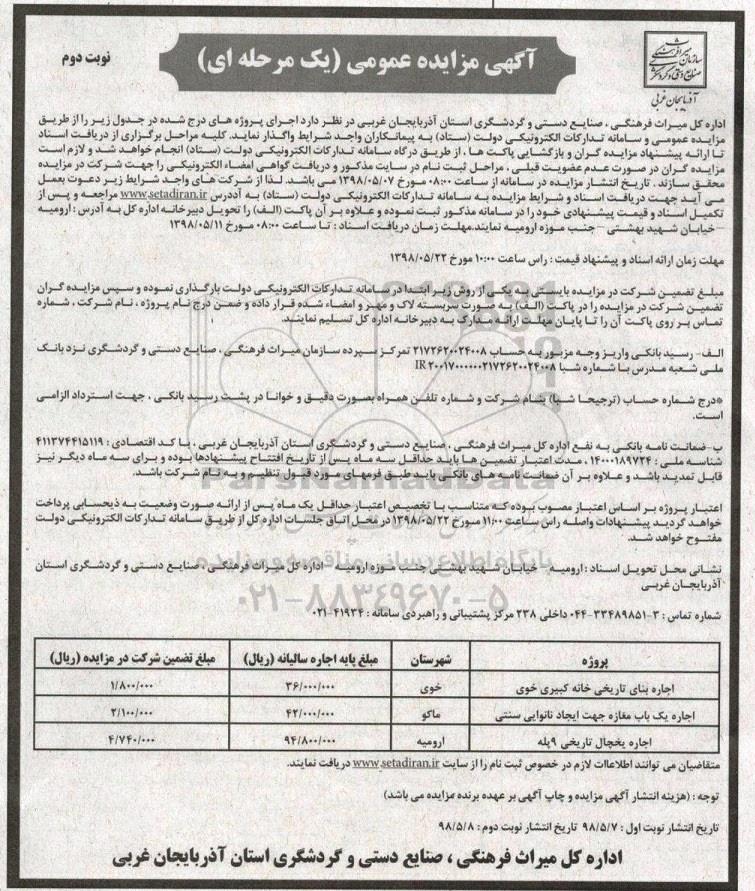 سازمان میراث فرهنگی
صنایع دستی و گردشگری
آذربایجان غربی
آگهی مزایده عمومی (یک مرحله ای)
نوبت دوم
اداره کل میراث فرهنگی ، صنایع دستی و گردشگری استان آذربایجان غربی در نظر دارد اجرای پروژه های درج شده در جدول زیر را از طریق
مزایده عمومی و سامانه تدارکات الکترونیکی دولت (ستاد) به پیمانکاران واجد شرایط واگذار نماید. کلیه مراحل برگزاری از دریافت اسناد
تا ارائه پیشنهاد مزایده گران و بازگشایی پاکت ها ، از طریق درگاه سامانه تدارکات الکترونیکی دولت (ستاد) انجام خواهد شد و لازم است
مزایده گران در صورت عدم عضویت قبلی ، مراحل ثبت نام در سایت مذکور و دریافت گواهی امضاء الکترونیکی را جهت شرکت در مزایده
محقق سازند . تاریخ انتشار مزایده در سامانه از ساعت ۰۸:۰۰ مورخ ۱۳۹۸/۰۵/۰۷ می باشد. لذا از شرکت های واجد شرایط زیر دعوت بعمل
می آید جهت دریافت اسناد و شرایط مزایده به سامانه تدارکات الکترونیکی دولت (ستاد) به آددرس www.setadiran.ir مراجعه و پس از
تکمیل اسناد و قیمت پیشنهادی خود را در سامانه مذکور ثبت نموده و علاوه بر آن پاکت (الف) را تحویل دبیرخانه اداره کل به آدرس : ارومیه
–خیابان شهید بهشتی –جنب موزه ارومیه نمایند.مهلت زمان دریافت اسناد : تا ساعت ۰۸:۰۰ مورخ ۱۳۹۸/۰۵/۱۱
مهلت زمان ارائه اسناد و پیشنهاد قیمت : راس ساعت ۱۰:۰۰ مورخ ۱۳۹۸/۰۵/۲۲
مبلغ تضمین شرکت در مزایده بایستی به یکی از روش زیر ابتدا در سامانه تدارکات الکترونیکی دولت بارگذاری نموده و سپس مزایده گران
تضمین شرکت در مزایده را در پاکت (الف) به صورت سربسته لاک و مهر و امضاء شده قرار داده و ضمن درج نام پروژه ، نام شرکت ، شماره
تماس بر روی پاکت آن را تا پایان مهلت ارائه مدارک به دبیرخانه اداره کل تسلیم نمایند.
الف- رسید بانکی واریز وجه مزبور به حساب ۲۱۷۲۶۲۰۰۲۴۰۰۸ تمرکز سپرده سازمان میراث فرهنگی ، صنایع دستی و گردشگری نزد بانک
ملی شعبه مدرس با شماره شبا IR ۲۰۰۱۷۰۰۰۰۰۰۲۱۷۲۶۲۰۰۲۴۰۰۸
*درج شماره حساب (ترجیحا شبا) بنام شرکت و شماره تلفن همراه بصورت دقیق و خوانا در پشت رسید بانکی ، جهت استرداد الزامی
است.
ب-ضمانت نامه بانکی به نفع اداره کل میراث فرهنگی ، صنایع دستی و گردشگری استان آذربایجان غربی ، با کد اقتصادی : ۴۱۱۳۷۴۴۱۵۱۱۹
شناسه ملی : ۱۴۰۰۰۱۸۹۷۲۴ ، مدت اعتبار تضمین ها باید حداقل سه ماه پس از تاریخ افتتاح پیشنهادها بوده و برای سه ماه دیگر نیز
قابل تمدید باشد و علاوه بر آن ضمانت نامه های بانکی باید طبق فرمهای مورد قبول تنظیم و به نام شرکت باشد.
اعتبار پروژه بر اساس اعتبار مصوب بوده که متناسب با تخصیص اعتبار حداقل یک ماه پس از ارائه صورت وضعیت به ذیحسابی پرداخت
خواهد گردید پیشنهادات واصله راس ساعت ۱۱:۰۰ مورخ ۱۳۹۸/۰۵/۲۲ در محل اتاق جلسات اداره کل از طریق سامانه تدارکات الکترونیکی دولت
مفتوح خواهد شد.
نشانی محل تحویل اسناد : ارومیه – خیابان شهید بهشتی جنب موزه ارومیه –اداره کل میراث فرهنگی ، صنایع دستی و گردشگری استان
آذربایجان غربی
شماره تماس : ۳-۳۳۴۸۹۸۵۱-۰۴۴ داخلی ۲۳۸ مرکز پشتیبانی و راهبردی سامانه : ۴۱۹۳۴-۰۲۱
پایگاه اطلاع رسانی مناقصه و مزایده
۰۲۱-۸۸۳۴۹۶۷۰-۵
پروژه شهرستان مبلغ پایه اجاره سالیانه (ریال) مبلغ تضمین شرکت در مزایده (ریال)
اجاره بنای تاریخی خانه کبیری خوی خوی ۳۶/۰۰۰/۰۰۰ ۱/۸۰۰/۰۰۰
اجاره یک باب مغازه جهت ایجاد نانوایی سنتی ماکو ۴۲/۰۰۰/۰۰۰ ۲/۱۰۰/۰۰۰
اجاره یخچال تاریخی ۹پله ارومیه ۹۴/۸۰۰/۰۰۰ ۴/۷۴۰/۰۰۰
متقاضیان می توانند اطلاعات لازم در خصوص ثبت نام را از سایت www.setadiran.ir دریافت نمایند.
توجه : (هزینه انتشار آگهی مزایده و چاپ آگهی بر عهده برنده مزایده می باشد)
تاریخ انتشار نوبت اول : ۹۸/۵/۷ تاریخ انتشار نوبت دوم : ۹۸/۵/۸
اداره کل میراث فرهنگی ، صنایع دستی و گردشگری استان آذربایجان غربی